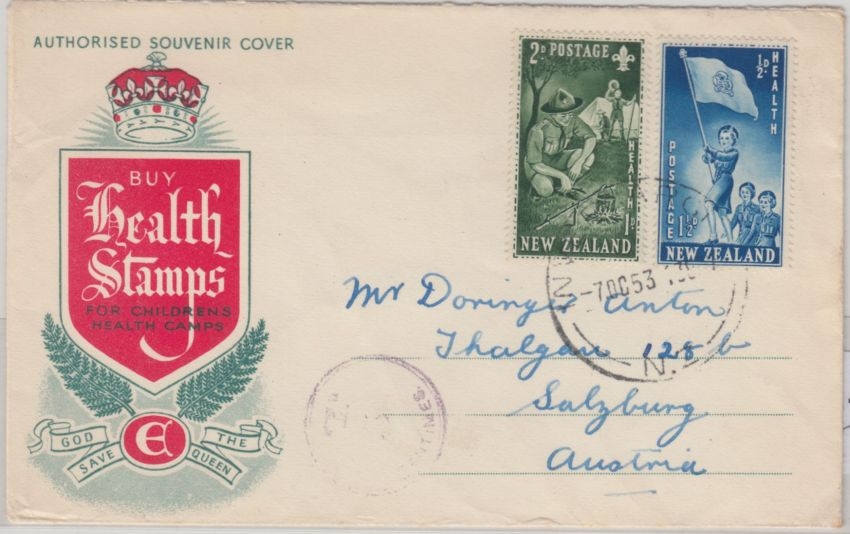 AUTHORISED SOUVENIR COVER
BUY
Health
Stamps
FOR CHILDRENS
HEALTH CAMPS
GOD SAVE E THE QUEEN
2D POSTAGE
HEALTH 1D
NEW ZEALAND
½D HEALTH
POSTAGE 1½D
NEW ZEALAND
-7OC53
N.
Mr Doringer Anton
Thalgau 128 b
Salzburg
Austria